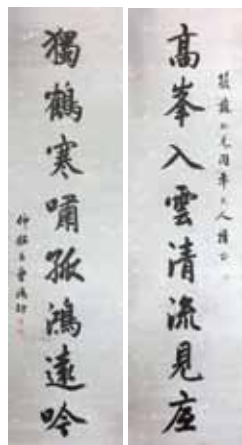 高峯入雲清流見底
獨鶴寒嘯孤鴻遠吟